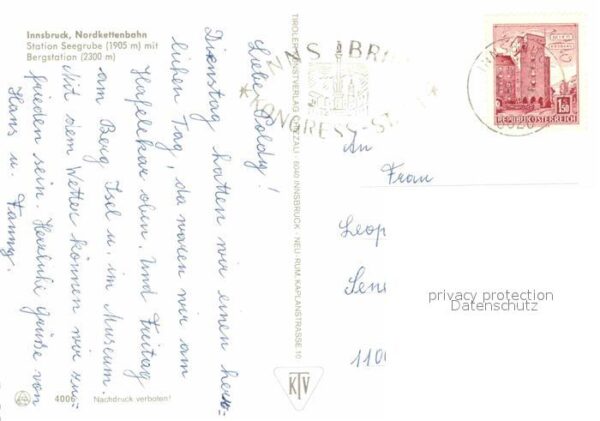 Innsbruck, Nordkettenbahn
Station Seegrube (1905 m) mit
Bergstation (2300 m)
Liebe Poldy!
Dienstag hatten wir einen herr-
lichen Tag, da waren wir am
Hafelekar oben. Und Freitag
am Berg Isel u. im Museum.
Mit dem Wetter können wir zu-
frieden sein. Herzliche Grüße von
Hans u. Fanny.
4006 Nachdruck verboten!
6040 INNSBRUCK - NEU-RUM, KAPLANSTRASSE 10
KTV
KONGRESS-
1.50
REPUBLIK ÖSTERREICH
An
Frau
Leop
110
privacy protection
Datenschutz